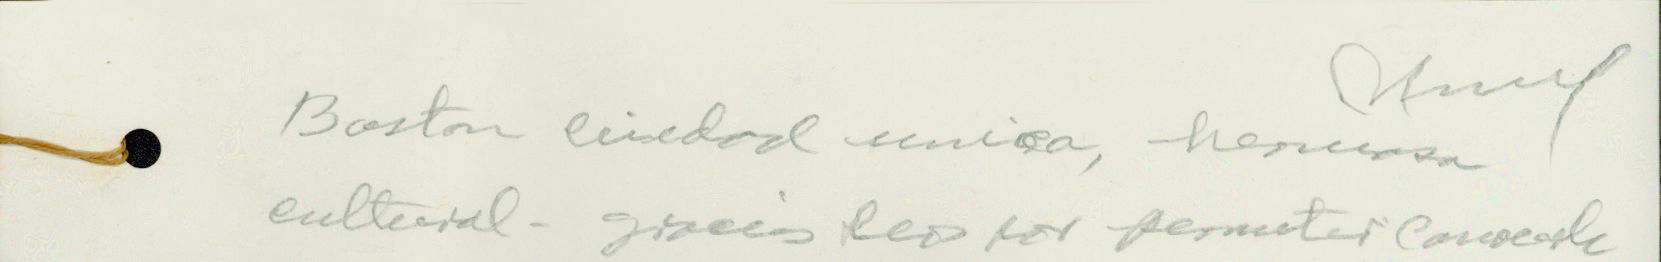 Boston ciudad unica, hermosa
cultural - gracias por permitir conocerle